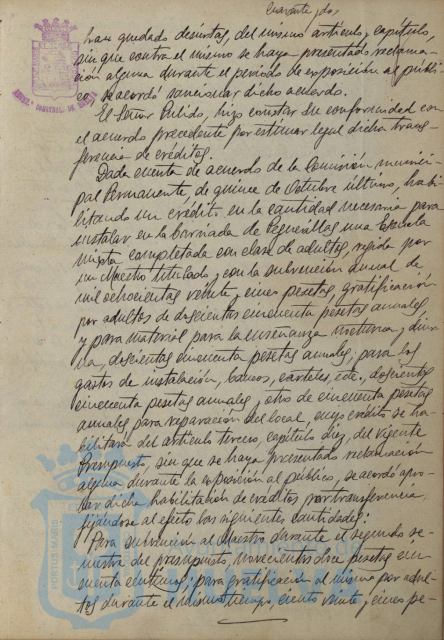 Cuarenta y dos
han quedado desiertas, del mismo artículo y capítulo,
sin que contra el mismo se haya presentado reclama-
ción alguna durante el período de exposición al públi-
co, se acordó sancionar dicho acuerdo.
El Señor Pulido, hizo constar su conformidad con
el acuerdo precedente por estimar legal dicha trans-
ferencia de créditos.
Dada cuenta de acuerdo de la Comisión munici-
pal Permanente de quince de Octubre último, habi-
litando un crédito en la cantidad necesaria para
instalar en la barriada de Peguerillas una Escuela
mixta completada con clase de adultos, regida por
un Maestro titulado, con la subvención anual de
mil ochocientas veinte y cinco pesetas, gratificación
por adultos de doscientas cincuenta pesetas anuales
y para material para la enseñanza nocturna y diur-
na, doscientas cincuenta pesetas anuales; para los
gastos de instalación, bancos, carteles, etc., doscientas
cincuenta pesetas anuales y otro de cincuenta pesetas
anuales para reparación del local, cuyo crédito se ha-
bilitará del artículo tercero, capítulo diez, del vigente
Presupuesto, sin que se haya presentado reclamación
alguna durante la exposición al público, se acordó apro-
bar dicha habilitación de créditos por transferencia,
fijándose al efecto las siguientes cantidades:
Para subvención al Maestro durante el segundo se-
mestre del presupuesto, novecientas doce pesetas cin-
cuenta céntimos; para gratificación al mismo por adul-
tos durante el mismo tiempo, ciento veinte y cinco pe-
PORTUS MARIS